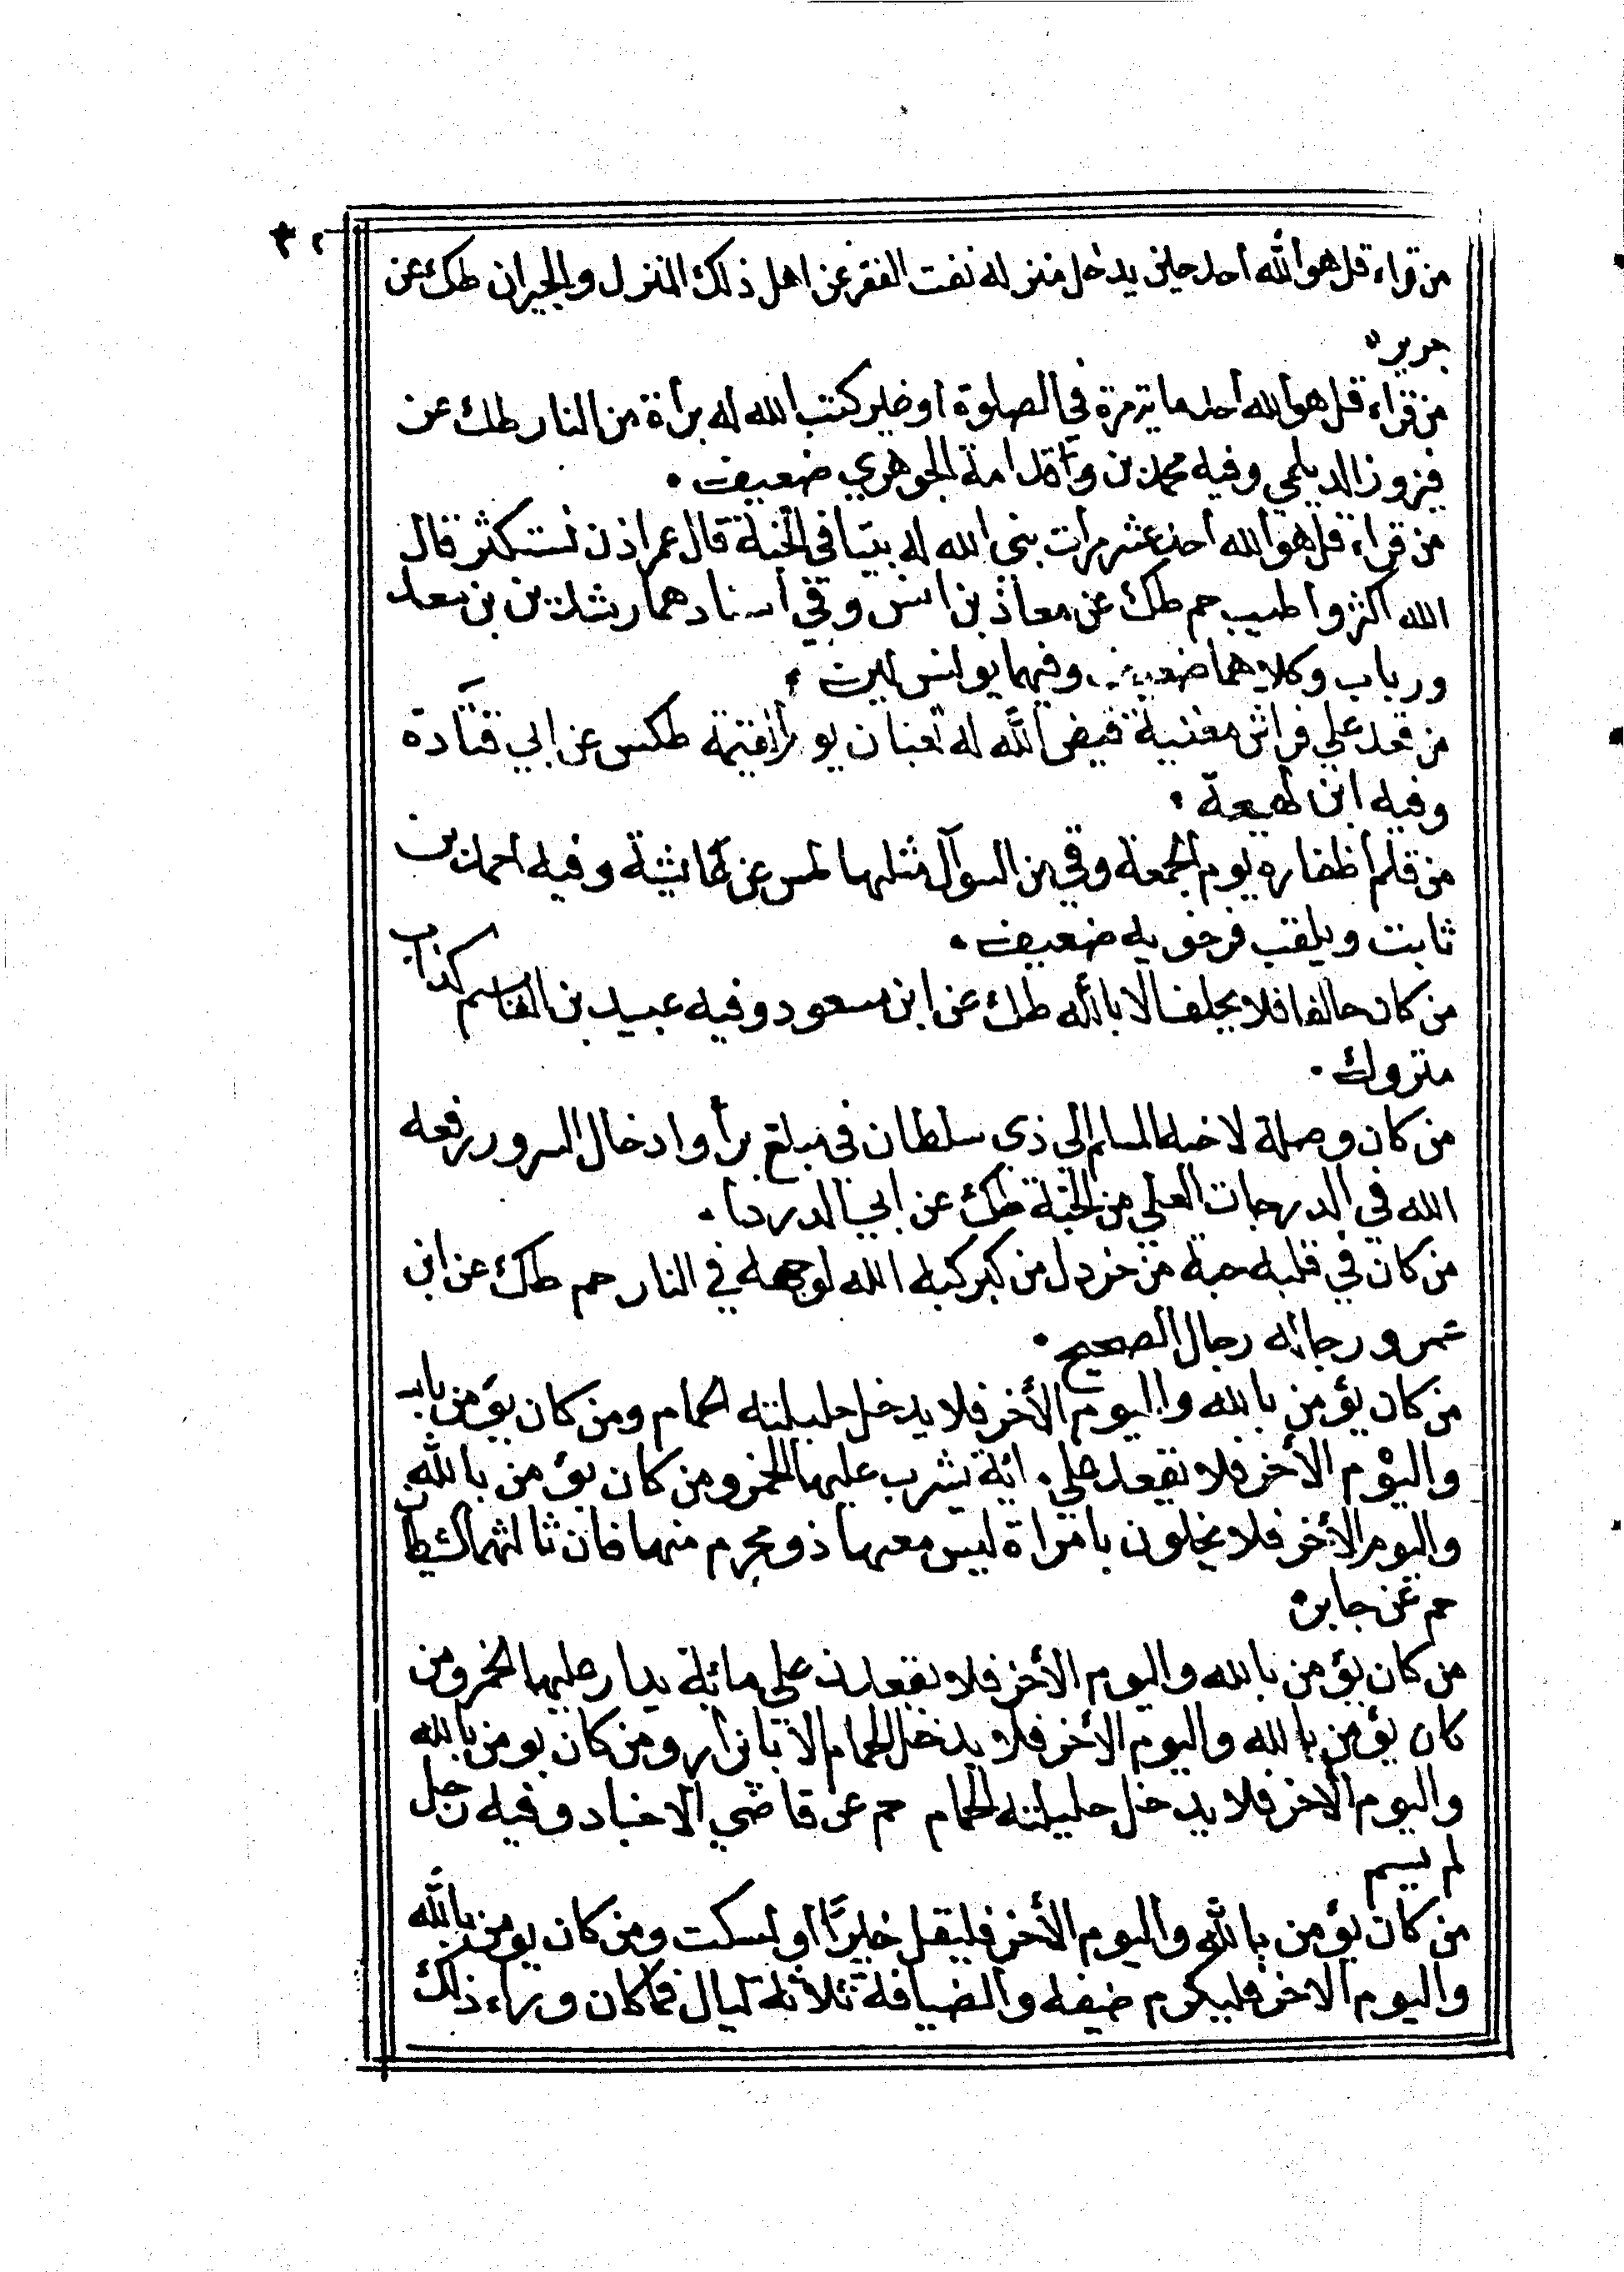 من قراء قل هو الله أحد حين يدخل منزله نفت الفقر عن اهل ذلك المنزل والجيران طك عن
جرير
من قراء قل هو الله أحد مأية مرة في الصلوة أو غير كتب الله له برأة من النار طك عن
فيروز الديلمي وفيه محمد بن قدامة الجوهري ضعيف
من قراء قل هو الله أحد عشر مرات بنى الله له بيتا في الجنة قال عمر اذن نستكثر قال
الله اكثر وأطيب حم طك عن معاذ بن انس وفي أسنادهما رشدين بن سعد
ورباب وكلاهما ضعيف وفيهما لين
من قعد علي فراش مغنية قيض الله له ثعبان يوم القيمة طكس عن ابي قتادة
وفيه ابن لهيعة
من قلم أظفاره يوم الجمعة وقي من السوآل مثلها طس عن عائشة وفيه احمد بن
ثابت ويلقب فرخويه ضعيف
من كان حالفا فلا يحلف الا بالله طك عن ابن مسعود وفيه عبيد بن القاسم كذاب
متروك
من كان وصلة لاخيه المسلم الي ذي سلطان في مبلغ برأ وادخال السرور رفعه
الله في الدرجات العلي من الجنة طك عن ابي الدردا
من كان في قلبه حبة من خردل من كبر كبه الله لوجهه في النار حم طك عن ابن
عمرو رجاله رجال الصحيح
من كان يؤمن بالله واليوم الأخر فلا يدخل حليلته الحمام ومن كان يؤمن بالله
واليوم الأخر فلا تقعد علي مائية يشرب عليها الخمر ومن كان يؤمن بالله
واليوم الأخر فلا يخلون بامرأة ليس معها ذو محرم منها فان ثالثهما الشيطان
حم عن جابر
من كان يؤمن بالله واليوم الأخر فلا يقعدن علي مائية يدار عليها الخمر ومن
كان يؤمن بالله واليوم الأخر فلا يدخل الحمام الا بأزار ومن كان يومن بالله
واليوم الأخر فلا يدخل حليلته الحمام حم عن قاضي الاجناد وفيه رجل
لم يسم
من كان يؤمن بالله واليوم الأخر فليقل خيرًا أو ليسكت ومن كان يومن بالله
واليوم الأخر فليكرم ضيفه والضيافة ثلاثة ليال فما كان وراء ذلك